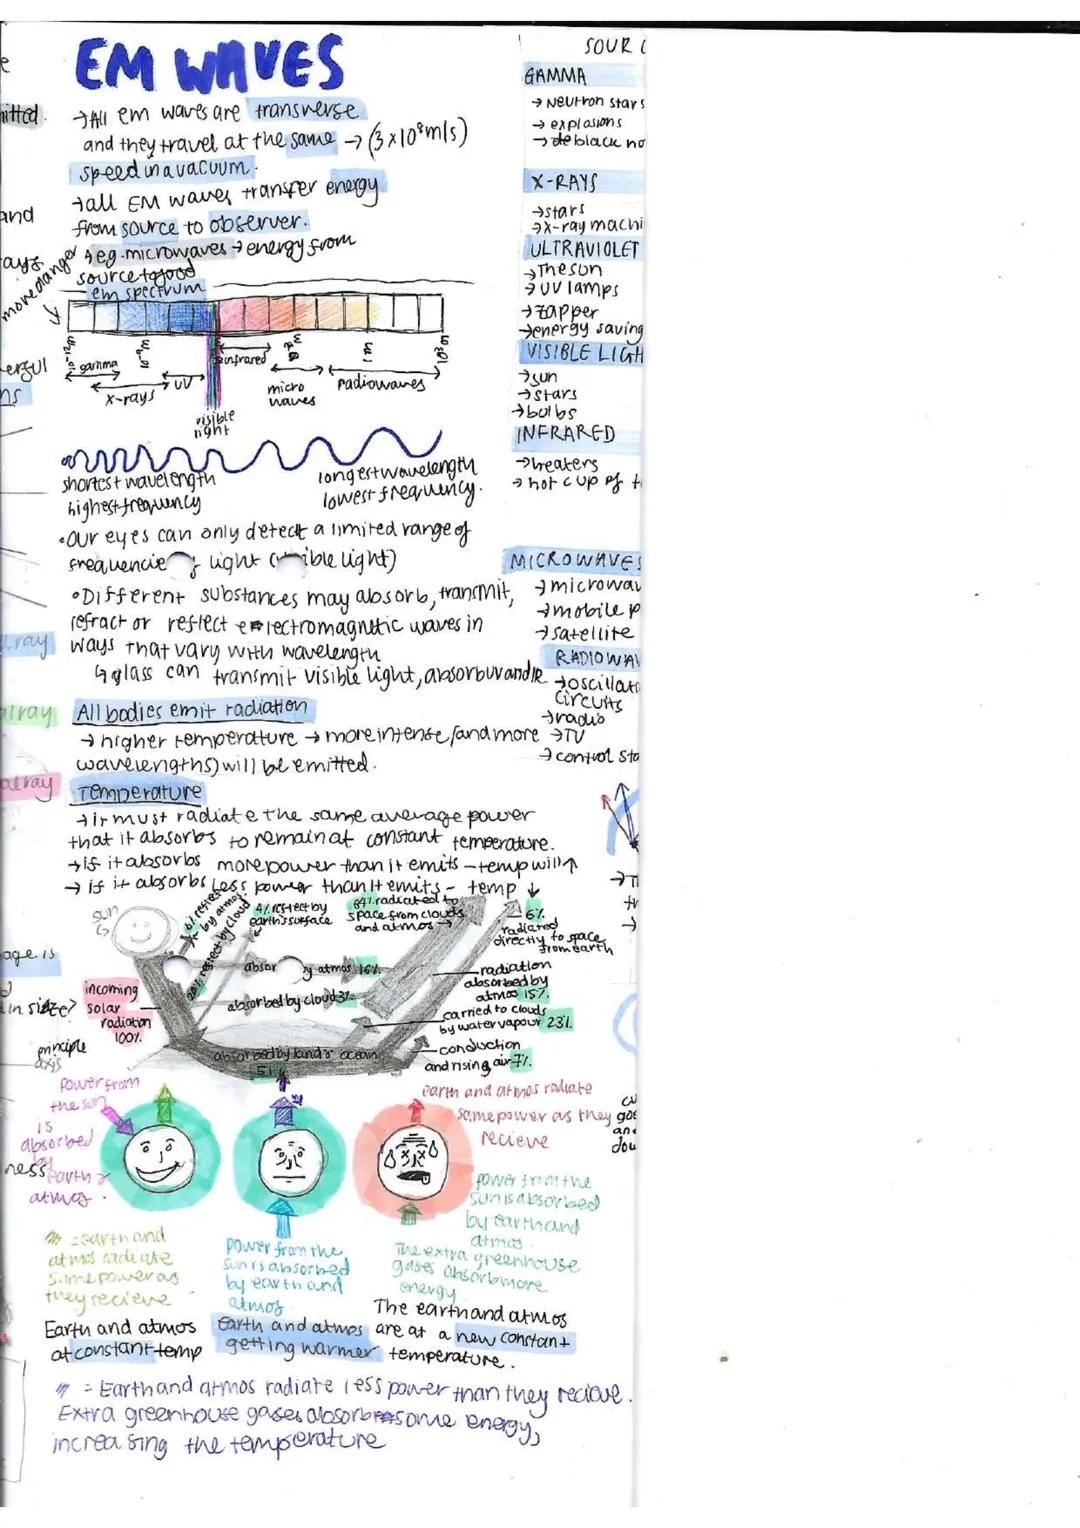 EM WAVES
→All em waves are transverse
and they travel at the same → (3×10⁸m/s)
speed in a vacuum.
→all EM waves transfer energy
from source to observer.
↳eg. microwaves → energy from
source to food
em spectrum
more danger
gamma
x-rays
UV
visible
light
infrared
micro
waves
radiowaves
shortest wavelength
highest frequency
longest wavelength
lowest frequency.
•Our eyes can only detect a limited range of
light
•Different substances may absorb, transmit,
refract or reflect electromagnetic waves in
ways that vary with wavelength
↳glass can transmit visible light, absorb uv and IR
All bodies emit radiation
→ higher temperature → more intense (and more
wavelengths) will be emitted.
Temperature
→it must radiate the same average power
that it absorbs to remain at constant temperature.
→if it absorbs more power than it emits - temp will↑
→ if it absorbs less power than it emits - temp ↓
sun
6% reflect
by atmos
20% reflect by cloud
4% reflect by
earth's surface
64% radiated to
space from clouds
and atmos →
6%
radiated
directly to space
from earth
incoming
solar
radiation
100%
atmos 16%
absorbed by cloud 3%
radiation
absorbed by
atmos 15%
carried to clouds
by water vapour 23%
conduction
and rising air 7%
absorbed by land & ocean
51
power from
the sun
is
absorbed
by
earth &
atmos.
= earth and
atmos radiate
same power as
they recieve
Earth and atmos
at constant temp
power from the
sun is absorbed
by earth and
atmos
Earth and atmos
getting warmer
earth and atmos radiate
same power as they
recieve
power from the
sun is absorbed
by earth and
atmos.
The extra greenhouse
gases absorb more
energy
The earth and atmos
are at a new constant
temperature.
= Earth and atmos radiate less power than they recieve.
Extra greenhouse gases absorb some energy,
increasing the temperature
GAMMA
→ Neutron stars
→ explosions
X-RAYS
→stars
ULTRAVIOLET
→The sun
→UV lamps
→zapper
→energy saving
VISIBLE LIGH
→sun
→stars
→bulbs
INFRARED
→heaters
→ hot cup of
MICROWAVES
→satellite
circuits
→radio
→TV
→control sta
and
ray
principle
axis
in size?